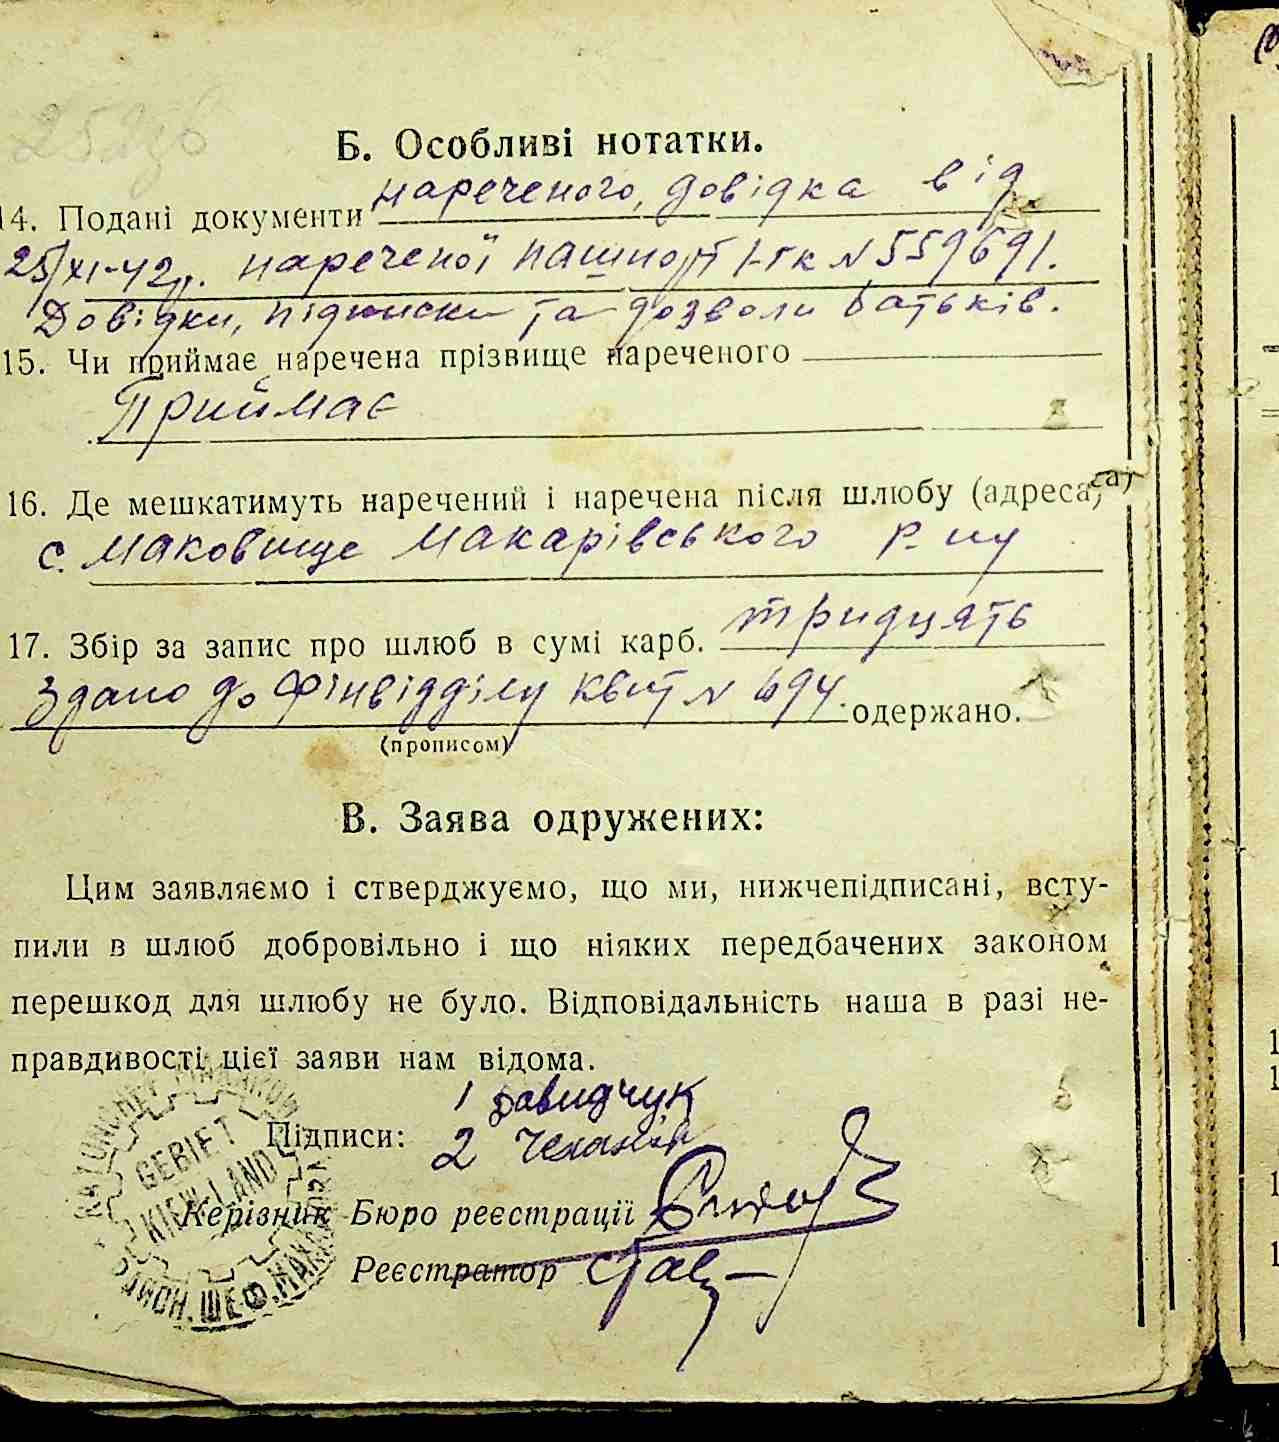 Б. Особливі нотатки.
14. Подані документи нареченого, довідка від
25/XI-42р. нареченої пашпорт І-ГК N 559691.
Довідки, підписки та дозволи батьків.
15. Чи приймає наречена прізвище нареченого
Приймає
16. Де мешкатимуть наречений і наречена після шлюбу (адреса,
с. Маковище Макарівського р-ну
17. Збір за запис про шлюб в сумі карб. тридцять
Здано до Фінвідділу квит N 694. одержано.
(прописом)
В. Заява одружених:
Цим заявляємо і стверджуємо, що ми, нижчепідписані, всту-
пили в шлюб добровільно і що ніяких передбачених законом
перешкод для шлюбу не було. Відповідальність наша в разі не-
правдивості цієї заяви нам відома.
1 Давидчук
Підписи: 2
GEBIET
KIEW-LAND
Керівник Бюро реєстрації
Реєстратор